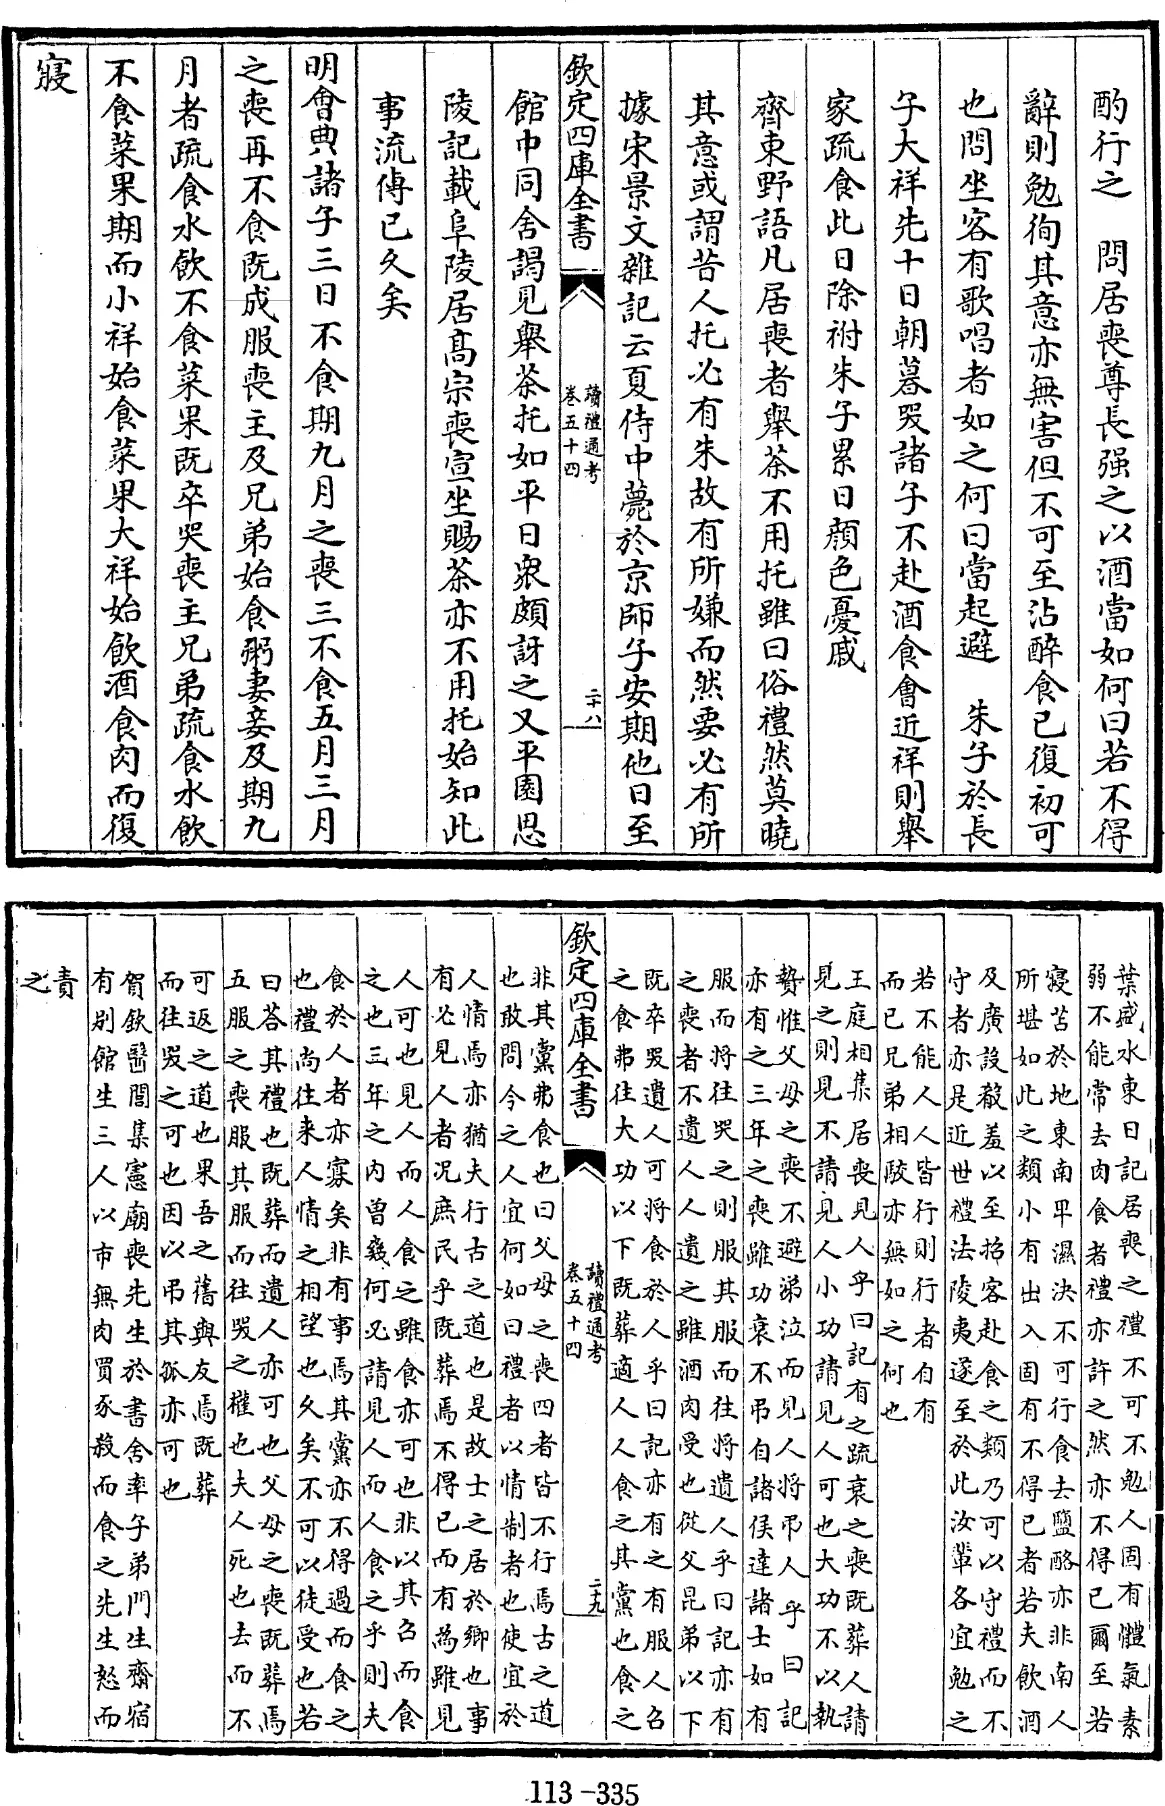 酌行之　問居喪尊長强之以酒當如何曰若不得
辭則勉徇其意亦無害但不可至沾醉食已復初可
也問坐客有歌唱者如之何曰當起避　朱子於長
子大祥先十日朝暮哭諸子不赴酒食會近祥則舉
家疏食此日除祔朱子累日顔色憂戚
齊東野語凡居喪者舉茶不用托雖曰俗禮然莫曉
其意或謂昔人托必有朱故有所嫌而然要必有所
據宋景文雜記云夏侍中薨於京師子安期他日至
欽定四庫全書
讀禮通考
卷五十四
二十八
館中同舍謁見舉茶托如平日衆頗訝之又平園思
陵記載阜陵居高宗喪宣坐賜茶亦不用托始知此
事流傳已久矣
明會典諸子三日不食期九月之喪三不食五月三月
之喪再不食既成服喪主及兄弟始食粥妻妾及期九
月者疏食水飲不食菜果既卒哭喪主兄弟疏食水飲
不食菜果期而小祥始食菜果大祥始飲酒食肉而復
寢
葉盛水東日記居喪之禮不可不勉人固有體氣素
弱不能常去肉食者禮亦許之然亦不得已爾至若
寢苫於地東南卑濕決不可行食去鹽酪亦非南人
所堪如此之類小有出入固有不得已者若夫飲酒
及廣設殽羞以至招客赴食之類乃可以守禮而不
守者亦是近世禮法陵夷遂至於此汝輩各宜勉之
若不能人人皆行則行者自有
而已兄弟相陵亦無如之何也
王庭相集居喪見人乎曰記有之疏衰之喪既葬人請
見之則見不請見人小功請見人可也大功不以執
贄惟父母之喪不避涕泣而見人將弔人乎曰記
亦有之三年之喪雖功衰不弔自諸侯達諸士如有
服而將往哭之則服其服而往將遺人乎曰記亦有
之喪者不遺人人遺之雖酒肉受也從父昆弟以下
既卒哭遺人可將食於人乎曰記亦有之有服人召
之食弗往大功以下既葬適人人食之其黨也食之
欽定四庫全書
讀禮通考
卷五十四
二十九
非其黨弗食也曰父母之喪四者皆不行焉古之道
也敢問今之人宜何如曰禮者以情制者也使宜於
人情焉亦猶夫行古之道也是故士之居於鄉也事
有必見人者況庶民乎既葬焉不得已而有為雖見
人可也見人而人食之雖食亦可也非以其召而食
之也三年之内曾幾何必請見人而人食之乎則夫
食於人者亦寡矣非有事焉其黨亦不得過而食之
也禮尚往来人情之相望也久矣不可以徒受也若
曰荅其禮也既葬而遺人亦可也父母之喪既葬焉
五服之喪服其服而往哭之權也夫人死也去而不
可返之道也果吾之舊與友焉既葬
而往哭之可也因以弔其孤亦可也
賀欽醫閭集憲廟喪先生於書舍率子弟門生齋宿
有别館生三人以市無肉買豕殺而食之先生怒而
責
之
113-335